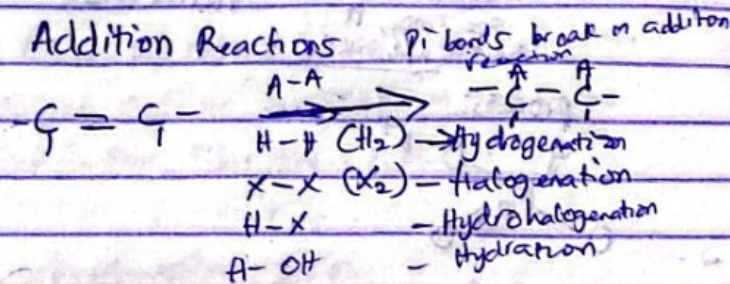 Addition Reactions Pi bonds break in addition
reaction
A-A
A A
-C = C- → -C-C-
H-H (H2) → Hydrogenation
X-X (X2) - Halogenation
H-X - Hydrohalogenation
A-OH - Hydration